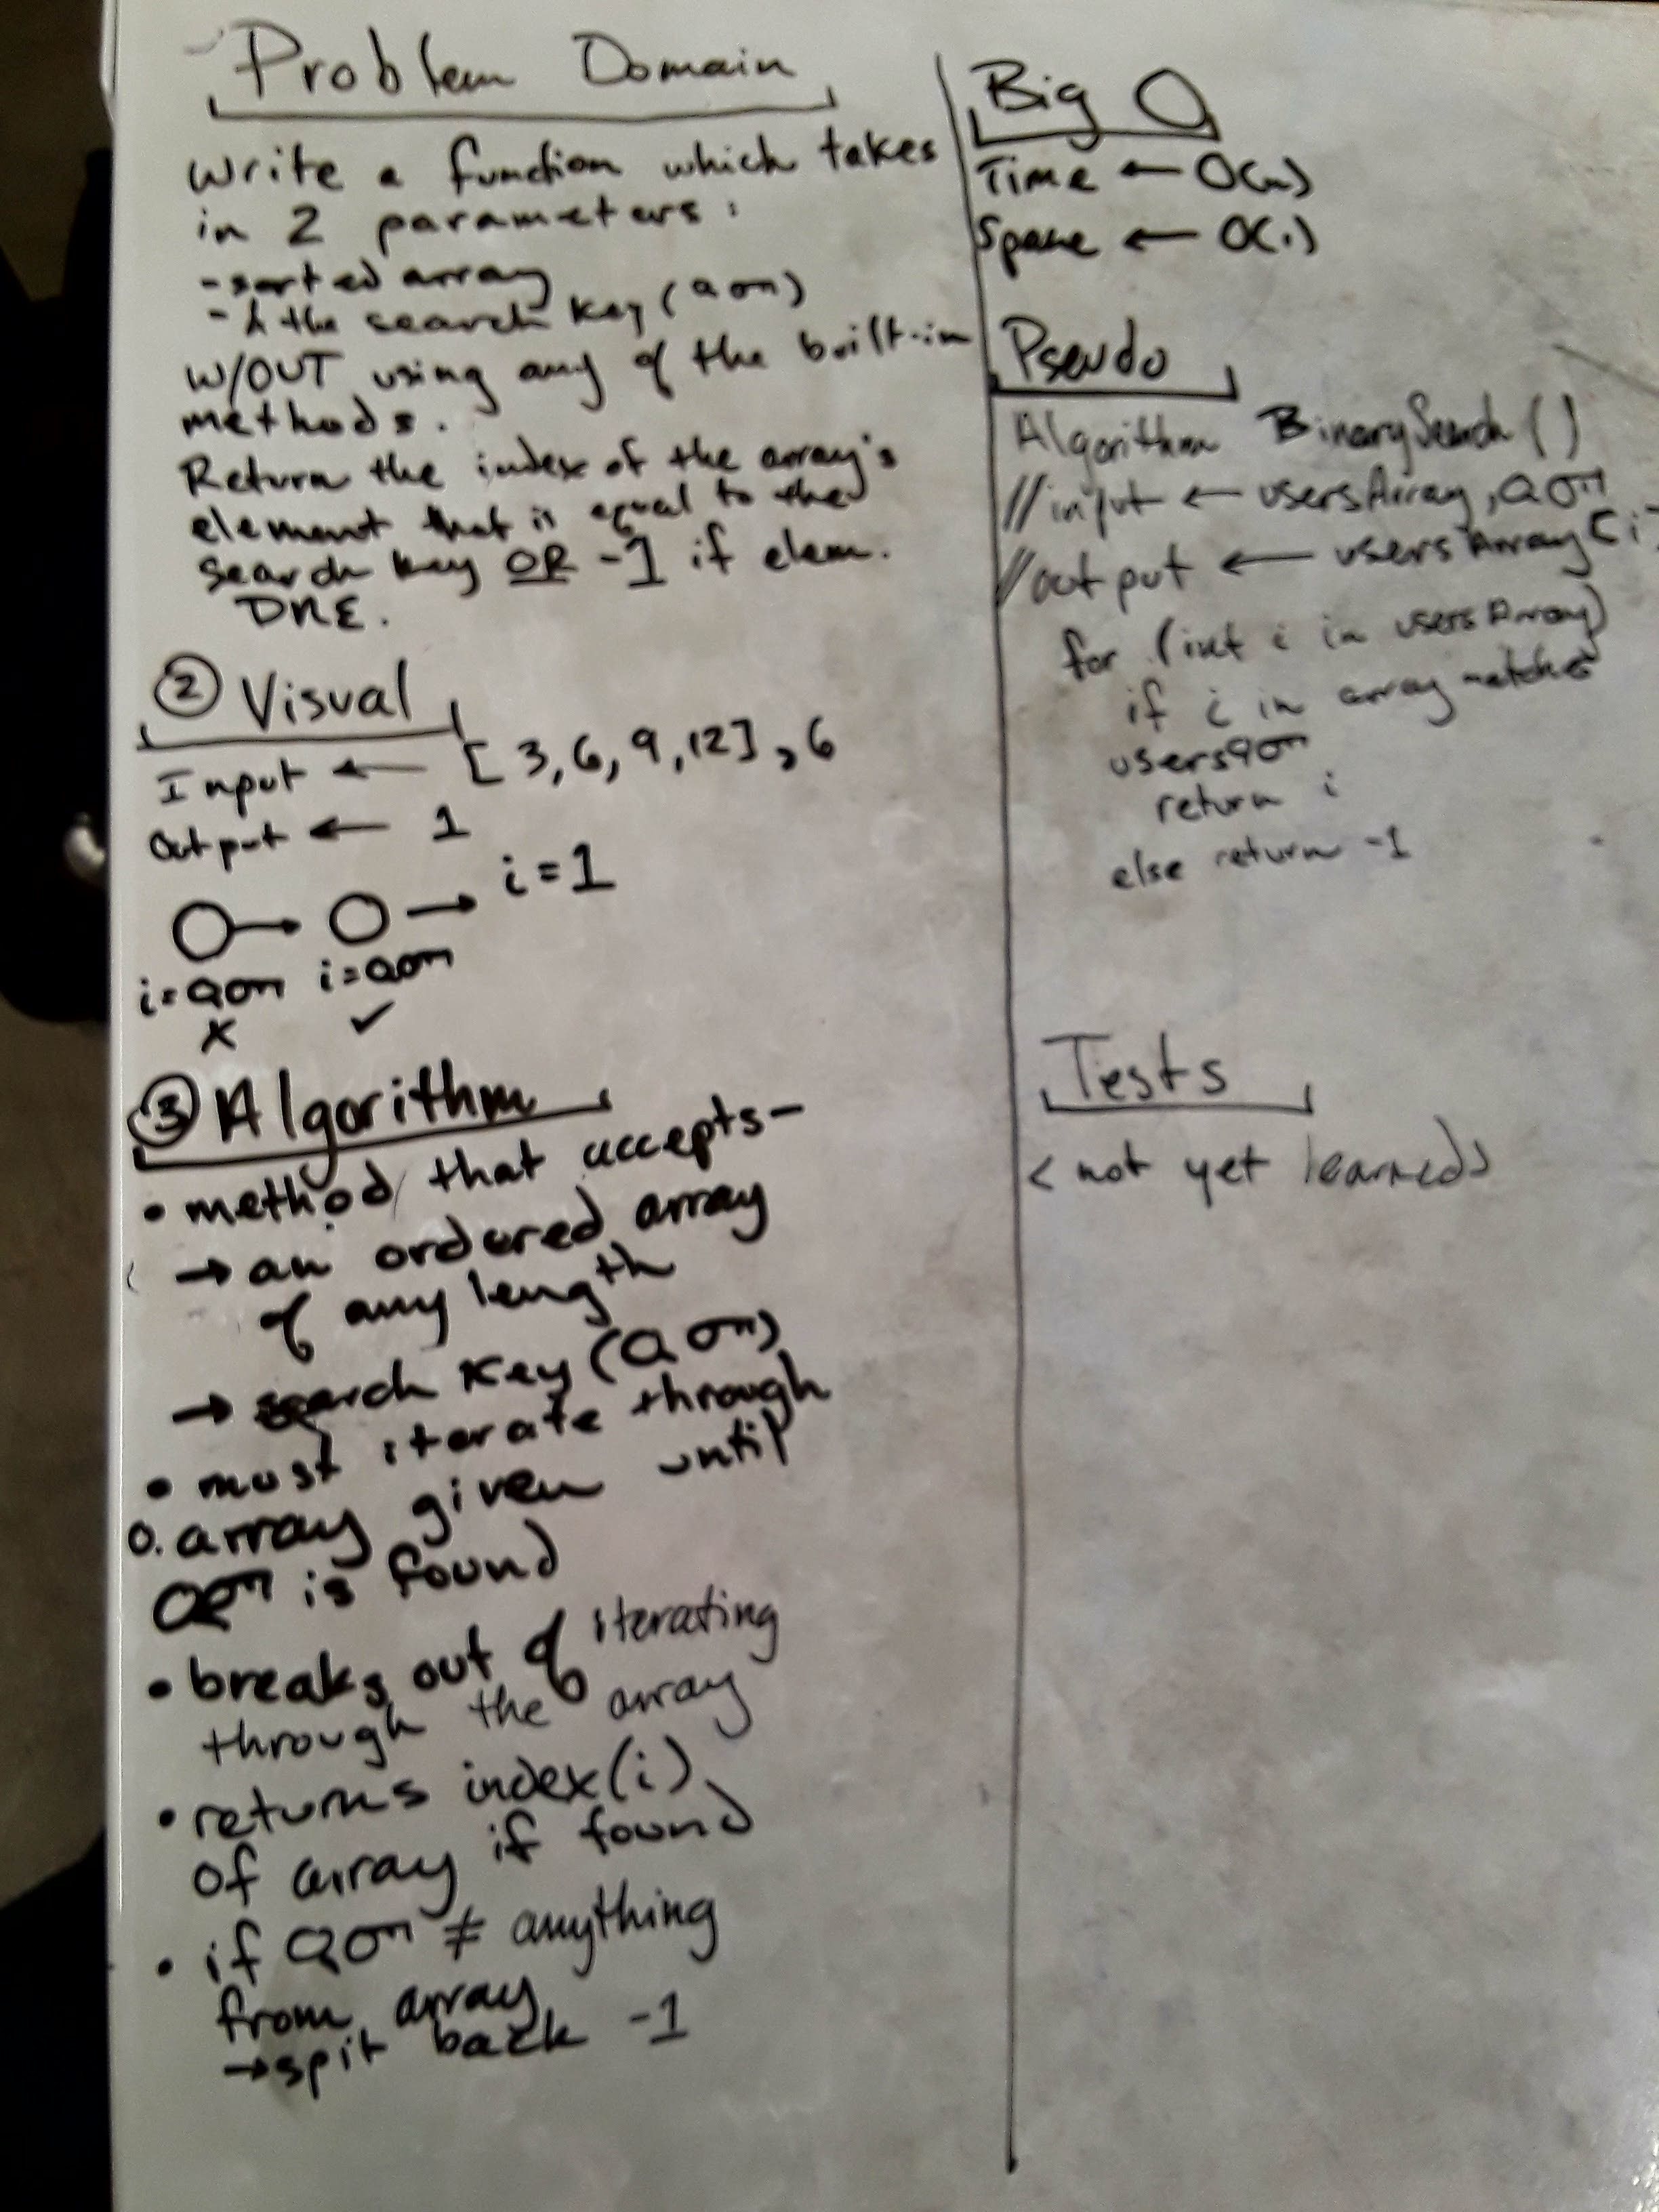 Problem Domain
Write a function which takes
in 2 parameters:
- sorted array
- & the search key (qon)
W/OUT using any of the built-in
methods.
Return the index of the array's
element that is equal to the
search key OR -1 if elem.
DNE.
② Visual
Input ← [3,6,9,12], 6
Output ← 1
→ → i=1
i=qon i=qon
x ✓
③ Algorithm
• method that accepts-
→ an ordered array
of any length
→ search key (qon)
• must iterate through
array given until
is found
• breaks out of iterating
through the array
• returns index(i)
of array if found
• if qon ≠ anything
from array
→ spit back -1
Big O
Time ← O(n)
Space ← O(1)
Pseudo
Algorithm BinarySearch()
//input ← usersArray, qon
//output ← usersArray[i]
for (int i in usersArray)
if i in array matches
usersqon
return i
else return -1
Tests
< not yet learned>